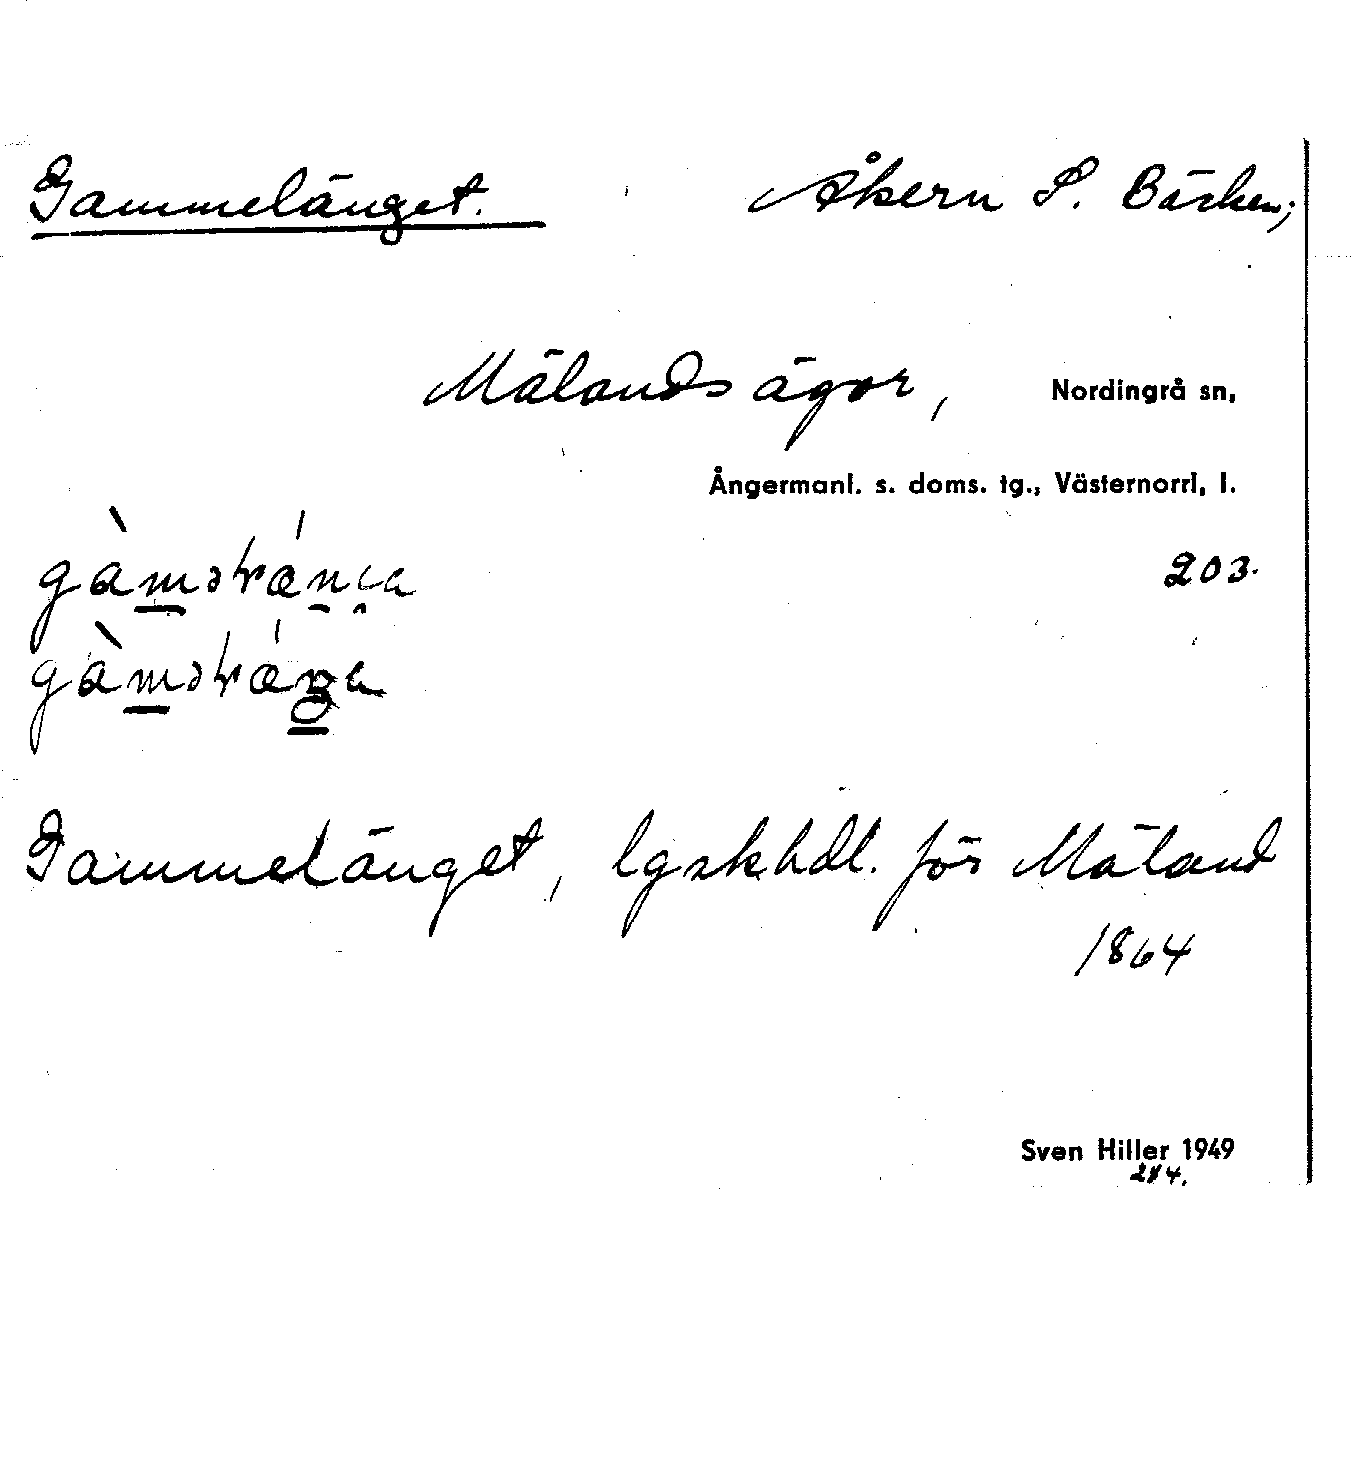 Gammelänget. Åkern S. Bäcken;
Mälands ägor, Nordingrå sn,
Ångermanl. s. doms. tg., Västernorrl. l.
203.
Gammelänget, lgskhdl. för Mäland
1864
Sven Hiller 1949
284.